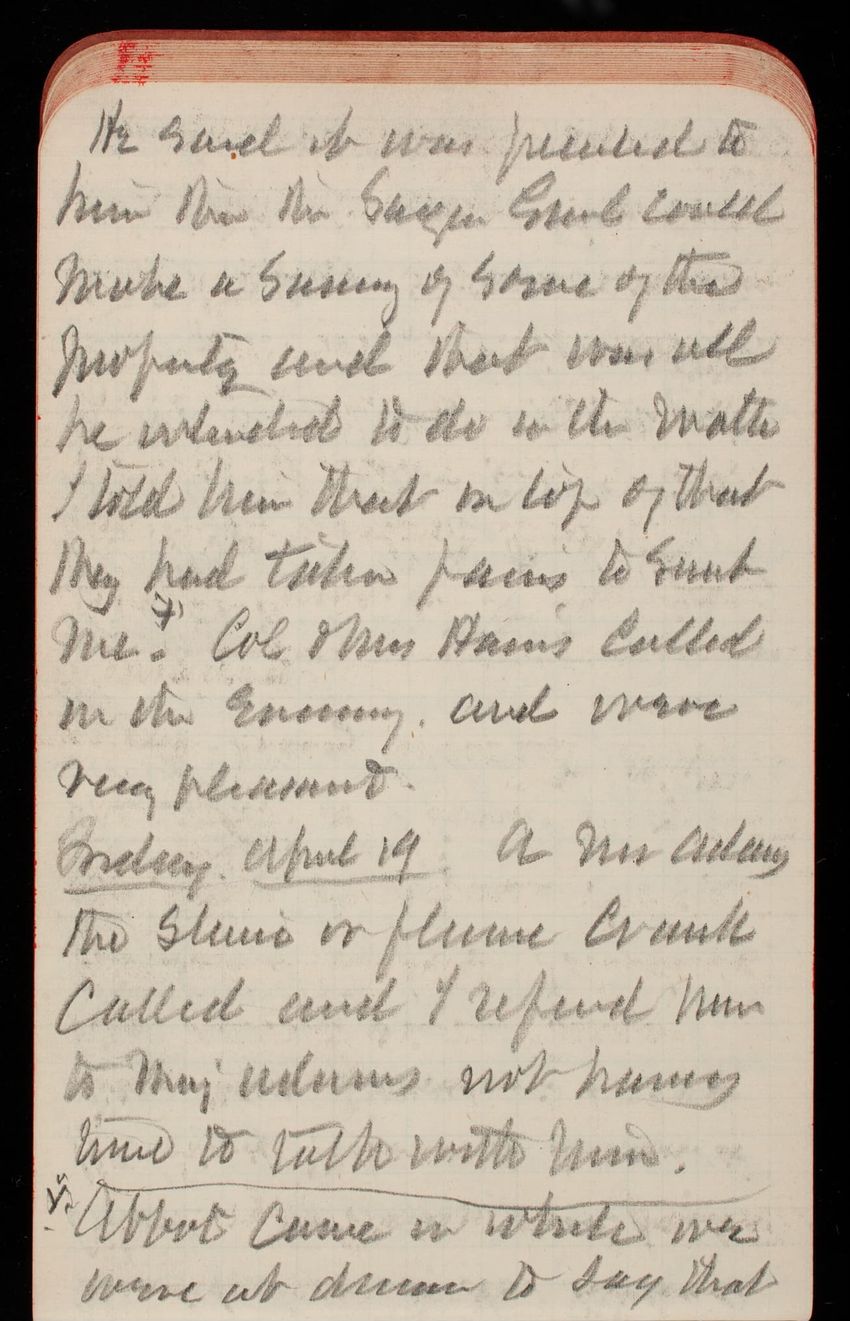 He said it was pointed to
him that the Genl could
make a survey of some of the
property and that was all
he intended to do in the matter
I told him that on top of that
they had taken pains to
me." Col & Mrs Hains called
in the evening. and were
very pleasant.
Friday. April 19 A Mr Adams
the or flume Crank
Called and I referd him
to Maj Adams not having
time to talk with him.
Abbot came in while we
were at dinner to say that